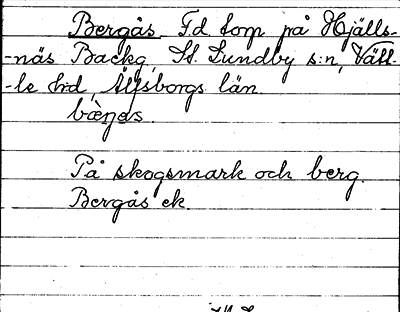 Bergås Fd torp på Hjälls-
-näs Backg, St. Lundby s:n, Vätt-
-le hd, Älvsborgs län.
På skogsmark och berg.
Bergås ek.